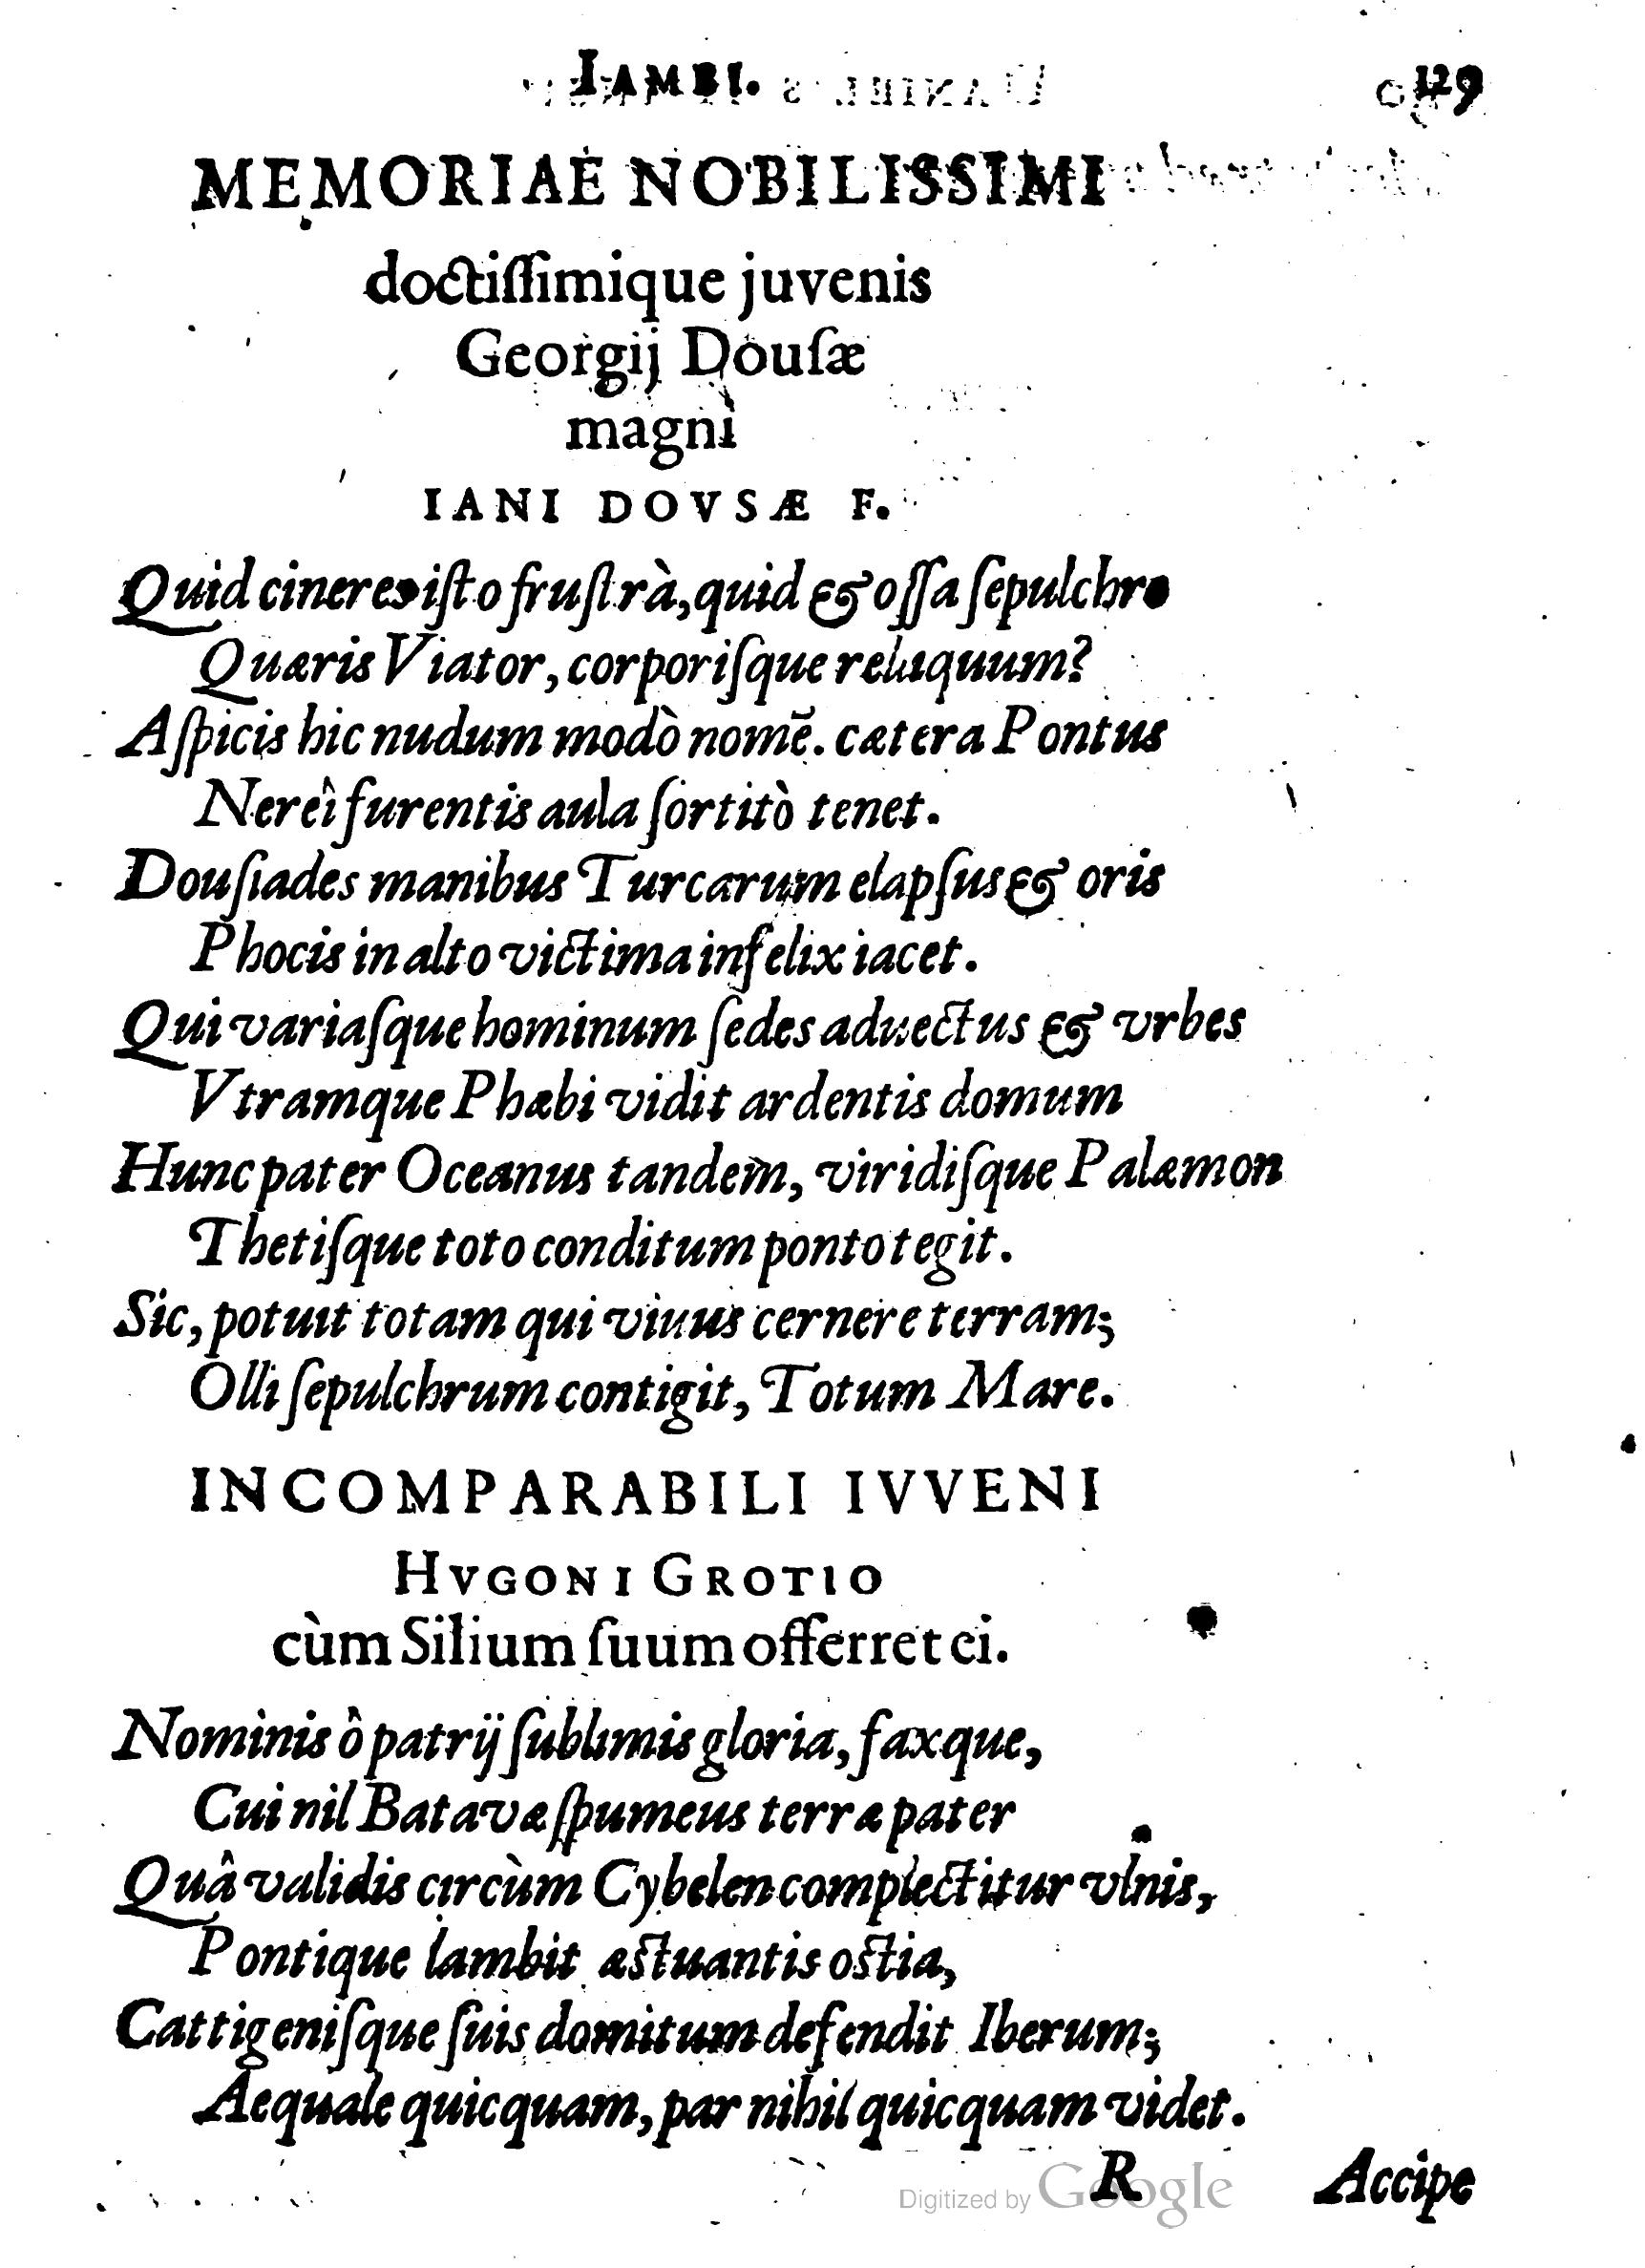 IAMBI. 129
MEMORIAE NOBILISSIMI
doctiſſimique juvenis
Georgij Douſæ
magni
IANI DOVSÆ F.
Quid cineres iſto fruſtrà, quid & oſſa ſepulchro
Quæris Viator, corporiſque reliquum?
Aſpicis hic nudum modò nomē. cætera Pontus
Nereî furentis aula ſortitò tenet.
Douſiades manibus Turcarum elapſus & oris
Phocis in alto victima infelix iacet.
Qui variaſque hominum ſedes aduectus & vrbes
Vtramque Phœbi vidit ardentis domum
Hunc pater Oceanus tandem, viridiſque Palæmon
Thetiſque toto conditum ponto tegit.
Sic, potuit totam qui viuus cernere terram;
Olli ſepulchrum contigit, Totum Mare.
INCOMPARABILI IVVENI
HVGONI GROTIO
cùm Silium ſuum offerret ei.
Nominis ô patrij ſublimis gloria, faxque,
Cui nil Batavæ ſpumeus terræ pater
Quâ validis circùm Cybelen complectitur vlnis,
Pontique lambit æſtuantis oſtia,
Cattigeniſque ſuis domitum defendit Iberum;
Aequale quicquam, par nihil quicquam videt.
R Accipe
Digitized by Google